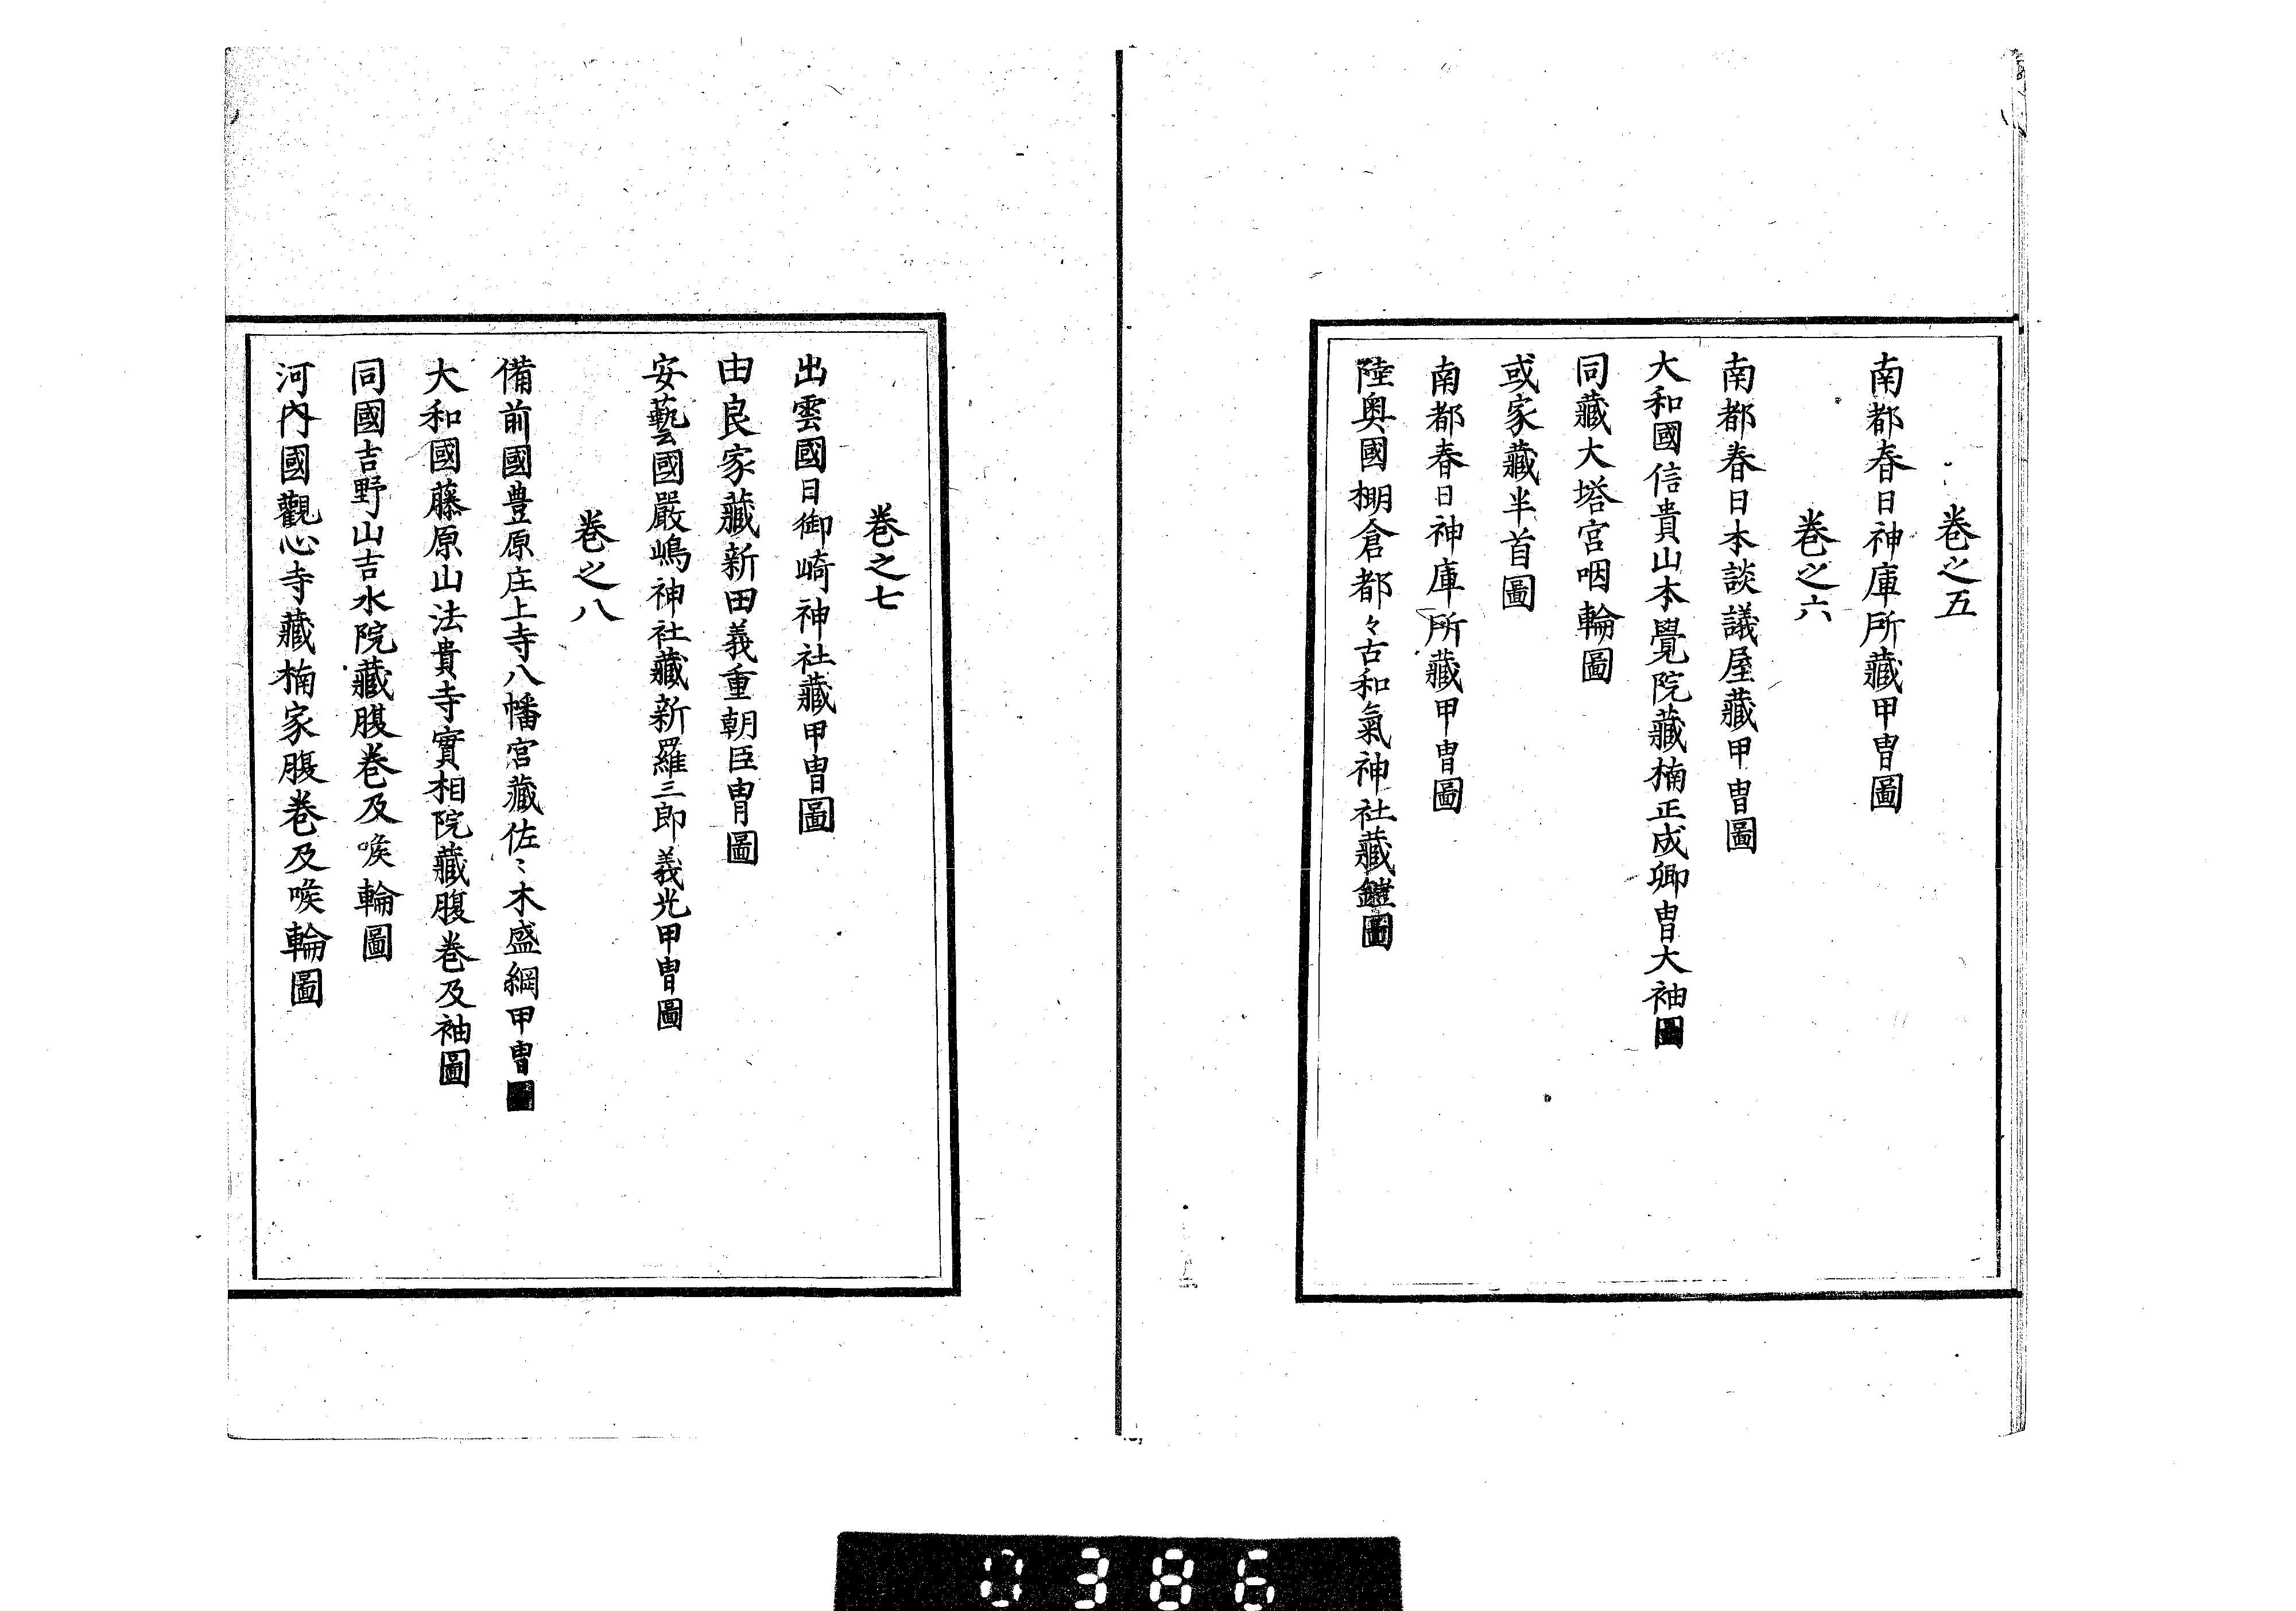 卷之五
南都春日神庫所藏甲冑圖
卷之六
南都春日本談議屋藏甲冑圖
大和國信貴山本覺院藏楠正成卿冑大袖圖
同藏大塔宮咽輪圖
或家藏半首圖
南都春日神庫所藏甲冑圖
陸奥國棚倉都々古和氣神社藏鎧圖
卷之七
出雲國日御崎神社藏甲冑圖
由良家藏新田義重朝臣冑圖
安藝國嚴嶋神社藏新羅三郎義光甲冑圖
卷之八
備前國豊原庄上寺八幡宮藏佐〻木盛綱甲冑圖
大和國藤原山法貴寺實相院藏腹卷及袖圖
同國吉野山吉水院藏腹卷及喉輪圖
河內國觀心寺藏楠家腹卷及喉輪圖
0386